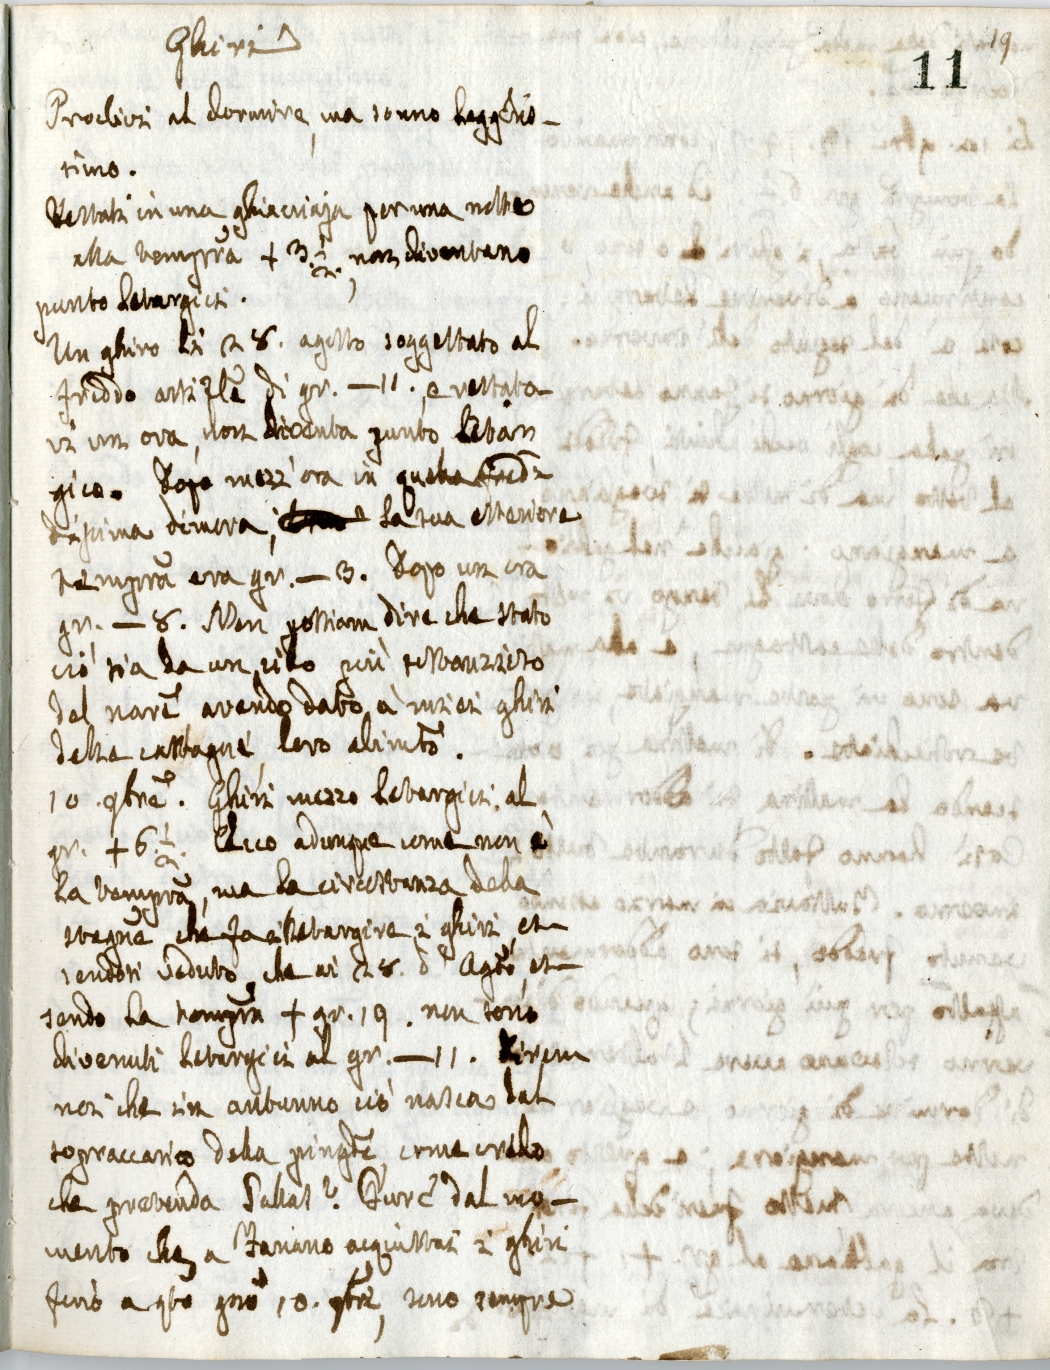 Ghiri
11 19
Proclivi al dormire, ma sonno leggeris-
simo.
Restati in una ghiacciaja per una notte
alla tempra + 3.½, non diventano
punto letargici.
Un ghiro li 28. agosto soggettato al
freddo artifle di gr. —11., e restato-
vi un ora, non diventa punto letar
gico. Dopo mezz'ora in quella fredd
issima dimora, la sua esteriore
tempra era gr. — 3. Dopo un ora
gr. — 8. Non possiam dire che stato
ciò sia da un cibo più sostanzioso
del narle avendo dato a miei ghiri
delle castagne, loro alimto.
10. 9bre. Ghiri mezzo letargici al
gr. + 6.½. Ecco adunque come non è
la tempra, ma la circostanza della
stagne che fa illetargire i ghiri, es-
sendosi veduto, che ai 28. d' Agto, es-
sendo la tempra + gr. 19. non sono
divenuti letargici al gr. —11. Direm
noi che in autunno ciò nasca dal
sopraccarico della pingdne, come credo
che pretenda Dal mo-
mento che a Fanano acquistai i ghiri
fino a qto gno 10. 9bre, sono sempre